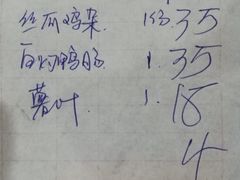 丝瓜鸡杂 1份 35
白灼鸭肠 1. 35
薯叶 1. 18
4